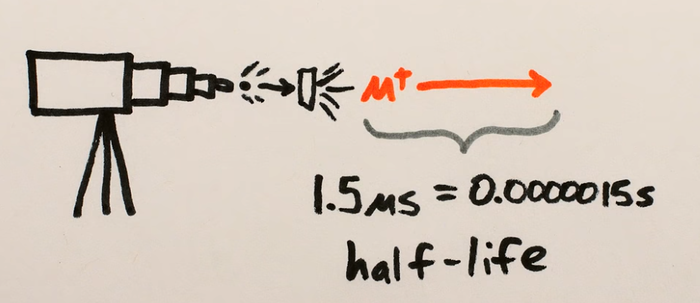 μ⁺
1.5μs = 0.0000015s
half-life